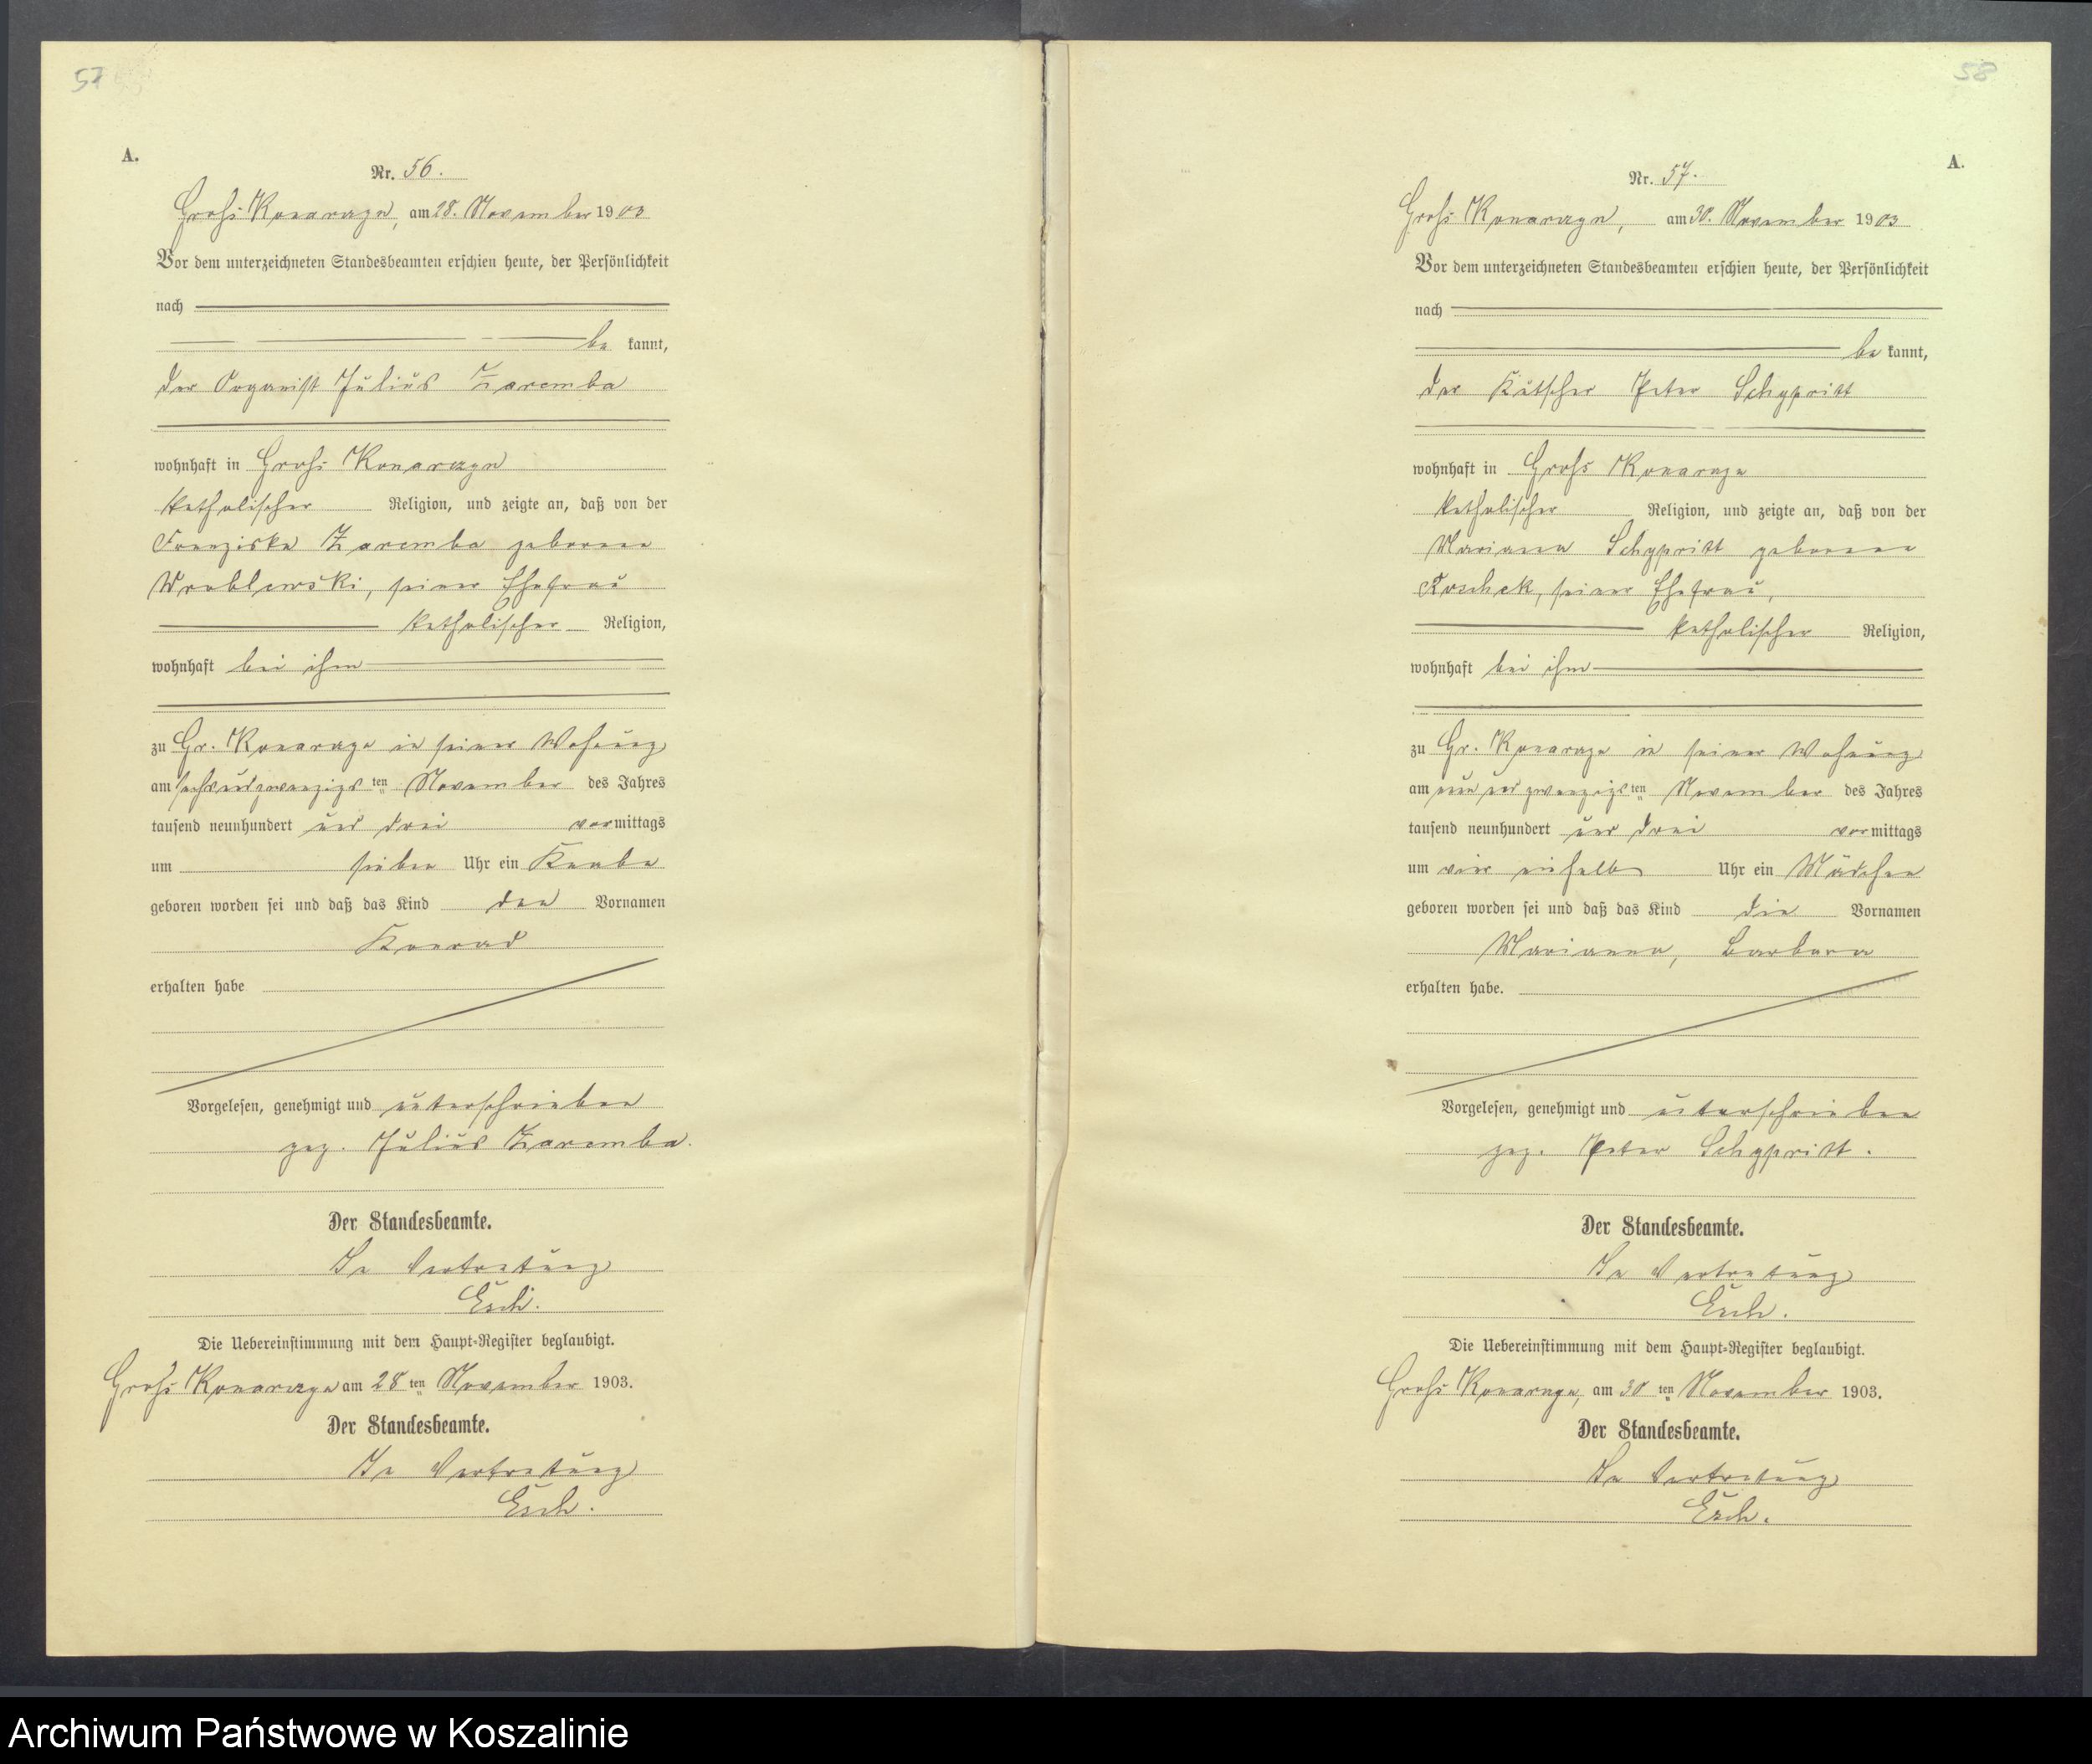 57
A.
Nr. 56.
Groß Konarczyn, am 28. November 1903
Vor dem unterzeichneten Standesbeamten erschien heute, der Persönlichkeit
nach
be kannt,
der Organist Julius Zaremba
wohnhaft in Groß Konarczyn
katholischer Religion, und zeigte an, daß von der
Franziska Zaremba geborene
Wroblewski, seiner Ehefrau
katholischer Religion,
wohnhaft bei ihm
zu Gr. Konarczyn in seiner Wohnung
am sechsundzwanzigsten November des Jahres
tausend neunhundert und drei vormittags
um sieben Uhr ein Knabe
geboren worden sei und daß das Kind den Vornamen
Konrad
erhalten habe
Vorgelesen, genehmigt und unterschrieben
gez. Julius Zaremba.
Der Standesbeamte.
In Vertretung
Esch.
Die Uebereinstimmung mit dem Haupt-Register beglaubigt.
Groß Konarczyn am 28 ten November 1903.
Der Standesbeamte.
In Vertretung
Esch.
58
A.
Nr. 57.
Groß Konarczyn, am 30. November 1903
Vor dem unterzeichneten Standesbeamten erschien heute, der Persönlichkeit
nach
be kannt,
der Kutscher Peter Schypritt
wohnhaft in Groß Konarczyn
katholischer Religion, und zeigte an, daß von der
Marianna Schypritt geborene
seiner Ehefrau,
katholischer Religion,
wohnhaft bei ihm
zu Gr. Konarczyn in seiner Wohnung
am neunundzwanzigsten November des Jahres
tausend neunhundert und drei vormittags
um vier einhalb Uhr ein Mädchen
geboren worden sei und daß das Kind die Vornamen
Marianna, Barbara
erhalten habe.
Vorgelesen, genehmigt und unterschrieben
gez. Peter Schypritt.
Der Standesbeamte.
In Vertretung
Esch.
Die Uebereinstimmung mit dem Haupt-Register beglaubigt.
Groß Konarczyn, am 30 ten November 1903.
Der Standesbeamte.
In Vertretung
Esch.
Archiwum Państwowe w Koszalinie